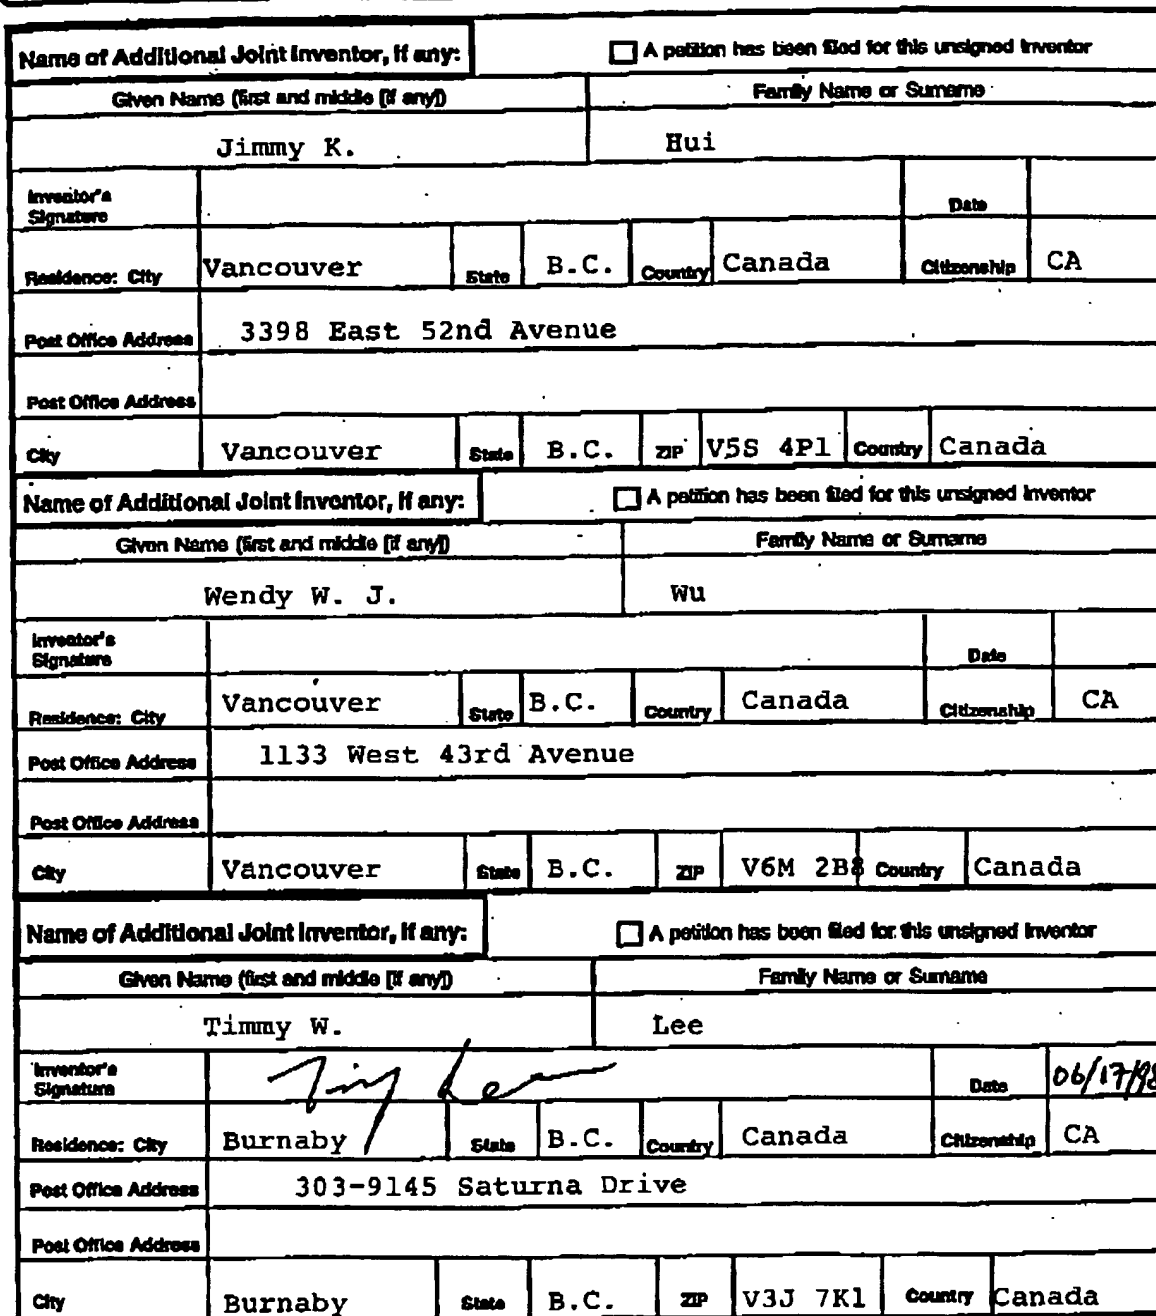 Name of Additional Joint Inventor, if any: A petition has been filed for this unsigned inventor
Given Name (first and middle [if any]) Family Name or Surname
Jimmy K. Hui
Inventor's Signature Date
Residence: City Vancouver State B.C. Country Canada Citizenship CA
Post Office Address 3398 East 52nd Avenue
Post Office Address
City Vancouver State B.C. ZIP V5S 4P1 Country Canada
Name of Additional Joint Inventor, if any: A petition has been filed for this unsigned inventor
Given Name (first and middle [if any]) Family Name or Surname
Wendy W. J. Wu
Inventor's Signature Date
Residence: City Vancouver State B.C. Country Canada Citizenship CA
Post Office Address 1133 West 43rd Avenue
Post Office Address
City Vancouver State B.C. ZIP V6M 2B8 Country Canada
Name of Additional Joint Inventor, if any: A petition has been filed for this unsigned inventor
Given Name (first and middle [if any]) Family Name or Surname
Timmy W. Lee
Inventor's Signature Date 06/17/98
Residence: City Burnaby State B.C. Country Canada Citizenship CA
Post Office Address 303-9145 Saturna Drive
Post Office Address
City Burnaby State B.C. ZIP V3J 7K1 Country Canada